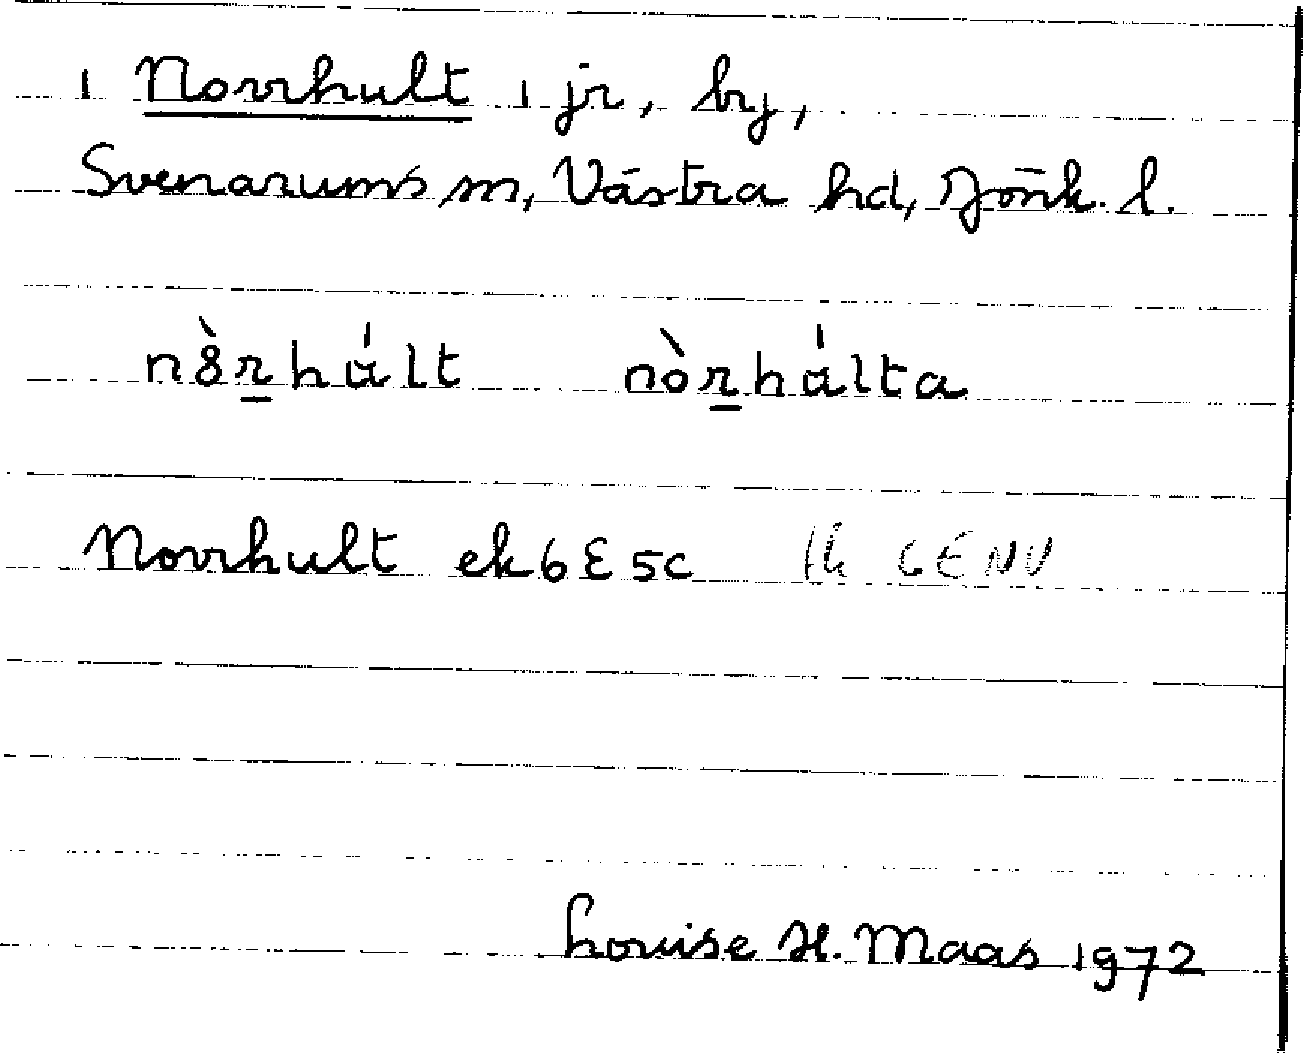 1 Norrhult, jr, by,
Svenarums sn, Västra hd, Jönk. l.
nòrhált nòrhálta
Norrhult ek 6E5c
Louise H. Maas 1972